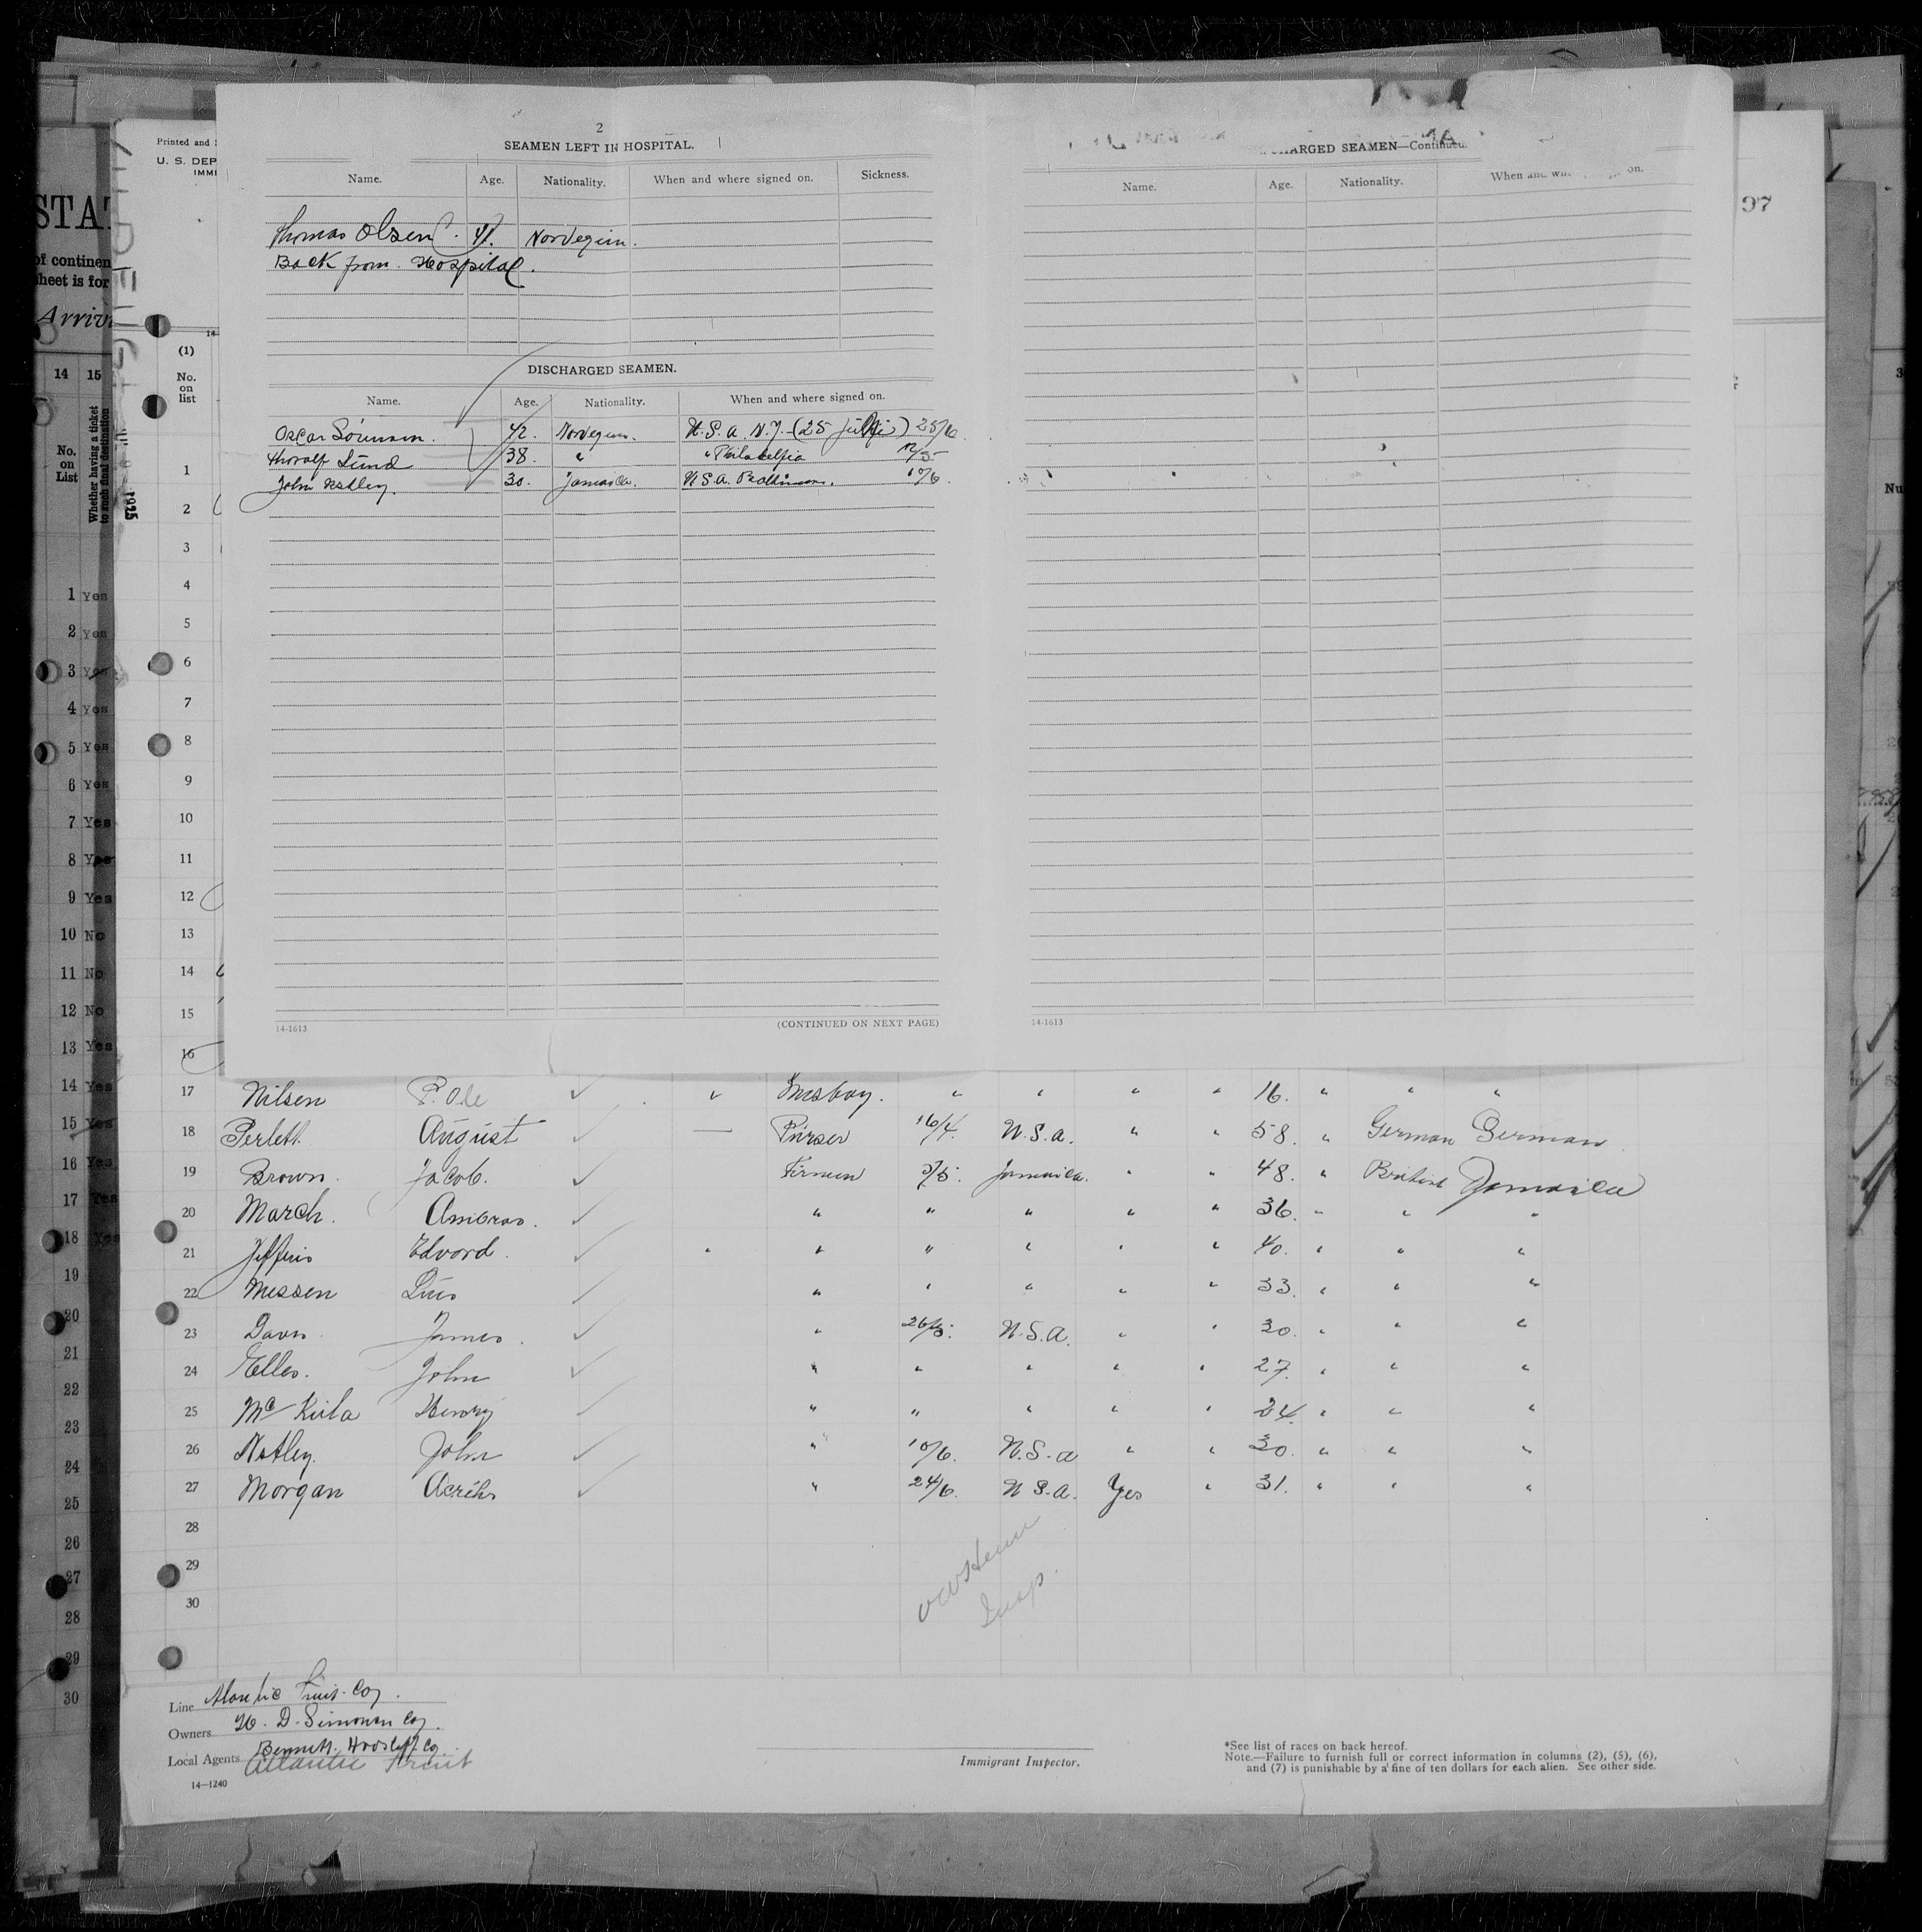 2
SEAMEN LEFT IN HOSPITAL.
Name. Age. Nationality. When and where signed on. Sickness.
Thomas Olsen. 41. Norvegian.
Back from. Hospital.
DISCHARGED SEAMEN.
Name. Age. Nationality. When and where signed on.
Oscar Sörensen. 42. Norvegian. U.S.A. N.Y. (25 ) 25/6
Thoralf Lund 38. " " Philadelfia
John Natley. 30. Jamaica. U.S.A. 10/6
14-1613 (CONTINUED ON NEXT PAGE)
CHARGED SEAMEN—Continued.
Name. Age. Nationality. When and on.
14-1613
Printed and
U. S. DEP
IMMI
97
STAT
of continen
sheet is for
Arriv
14 15
No. on List
Whether having a ticket to such final destination
1925
14-
(1)
No. on list
1 Yes
2 Yes
3 Yes
4 Yes
5 Yes
6 Yes
7 Yes
8 Yes
9 Yes
10 No
11 No
12 No
13 Yes
14 Yes
15 Yes
16 Yes
17 Yes
18 Yes
19
20
21
22
23
24
25
26
27
28
29
30
1
2
3
4
5
6
7
8
9
10
11
12
13
14
15
16
17 Nilsen P. Ole " Messboy. " " " " 16. " " "
18 Perlett August — Purser 16/4. U.S.A. " " 58. " German German
19 Brown. Jacob. Firmen 3/5. Jamaica. " " 48. " British Jamaica
20 March. Ambros. " " " " " 36. " " "
21 Jeffris Edvord. " " " " " " 40. " " "
22 Messen " " " " " 33. " " "
23 Davis James. " 26/5. U.S.A. " " 30. " " "
24 Elles. John " " " " " 27. " " "
25 Mc Henry " " " " " 24. " " "
26 Natley. John " 10/6. U.S.a " " 30. " " "
27 Morgan " 24/6. U S.A. Yes " 31. " " "
28
29
30
Insp.
Line Atlantic Fruit. Coy.
Owners W. D. Simonsen Coy.
Local Agents Bennett. Coy.
Atlantic Fruit
14—1240
Immigrant Inspector.
*See list of races on back hereof.
Note.—Failure to furnish full or correct information in columns (2), (5), (6),
and (7) is punishable by a fine of ten dollars for each alien. See other side.